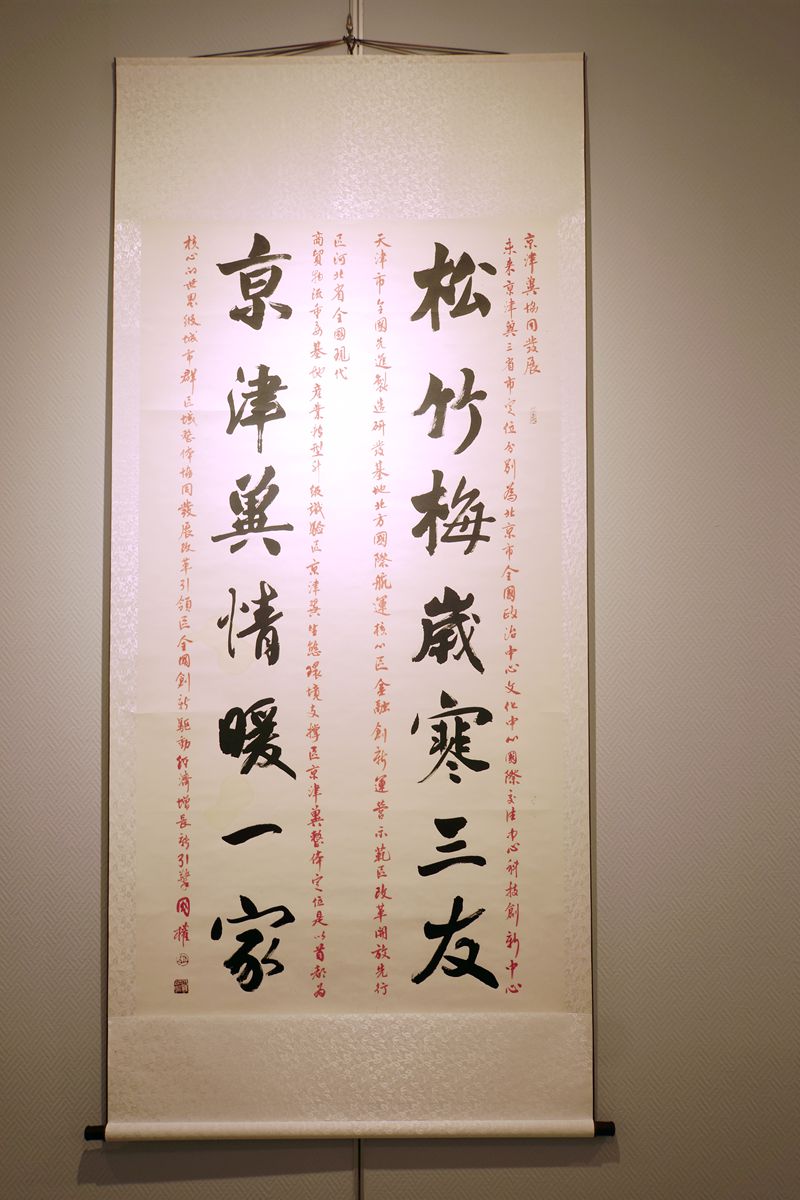 京津冀協同發展
未来京津冀三省市定位分别為北京市全國政治中心文化中心國際交往中心科技創新中心
松竹梅歲寒三友
天津市全國先進製造研發基地北方國際航運核心区金融創新運營示範区改革開放先行
区河北省全國現代
商貿物流重要基地產業转型升级試驗区京津冀生態環境支撐区京津冀整体定位是以首都为
京津冀情暖一家
核心的世界级城市群区域整体協同發展改革引領区全國創新驅動经濟增長新引擎
國權